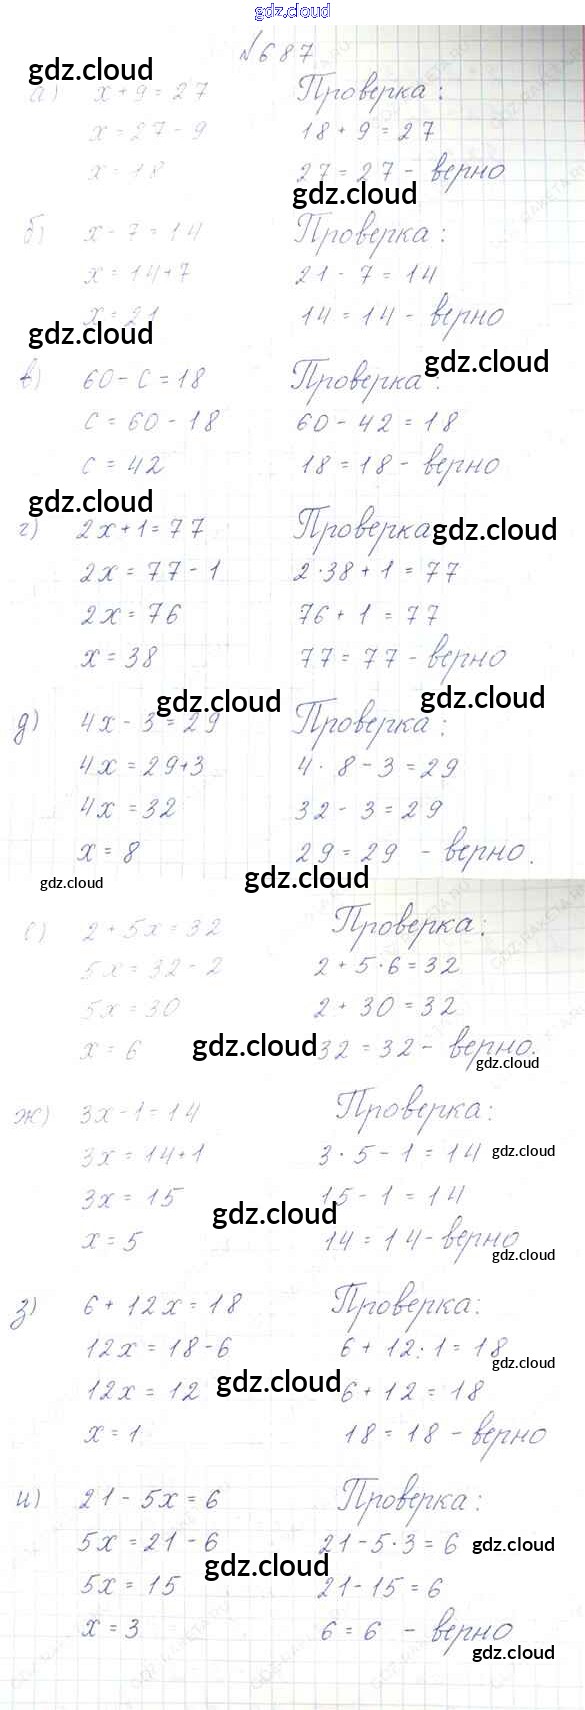 gdz.cloud
№687
gdz.cloud
а) x+9=27 Проверка:
x=27-9 18+9=27
x=18 27=27- верно
gdz.cloud
б) x-7=14 Проверка:
x=14+7 21-7=14
x=21 14=14- верно
gdz.cloud
gdz.cloud
в) 60-c=18 Проверка:
c=60-18 60-42=18
c=42 18=18- верно
gdz.cloud
г) 2x+1=77 Проверка
gdz.cloud
2x=77-1 2·38+1=77
2x=76 76+1=77
x=38 77=77- верно
gdz.cloud gdz.cloud
д) 4x-3=29 Проверка:
4x=29+3 4·8-3=29
4x=32 32-3=29
x=8 29=29 - верно.
gdz.cloud gdz.cloud
е) 2+5x=32 Проверка:
5x=32-2 2+5·6=32
5x=30 2+30=32
x=6 32=32- верно.
gdz.cloud
gdz.cloud
ж) 3x-1=14 Проверка:
3x=14+1 3·5-1=14
gdz.cloud
3x=15 15-1=14
gdz.cloud
x=5 14=14- верно
gdz.cloud
з) 6+12x=18 Проверка:
12x=18-6 6+12:1=18
gdz.cloud
12x=12 6+12=18
gdz.cloud
x=1 18=18- верно
и) 21-5x=6 Проверка:
5x=21-6 21-5·3=6
gdz.cloud
gdz.cloud
5x=15 21-15=6
x=3 6=6 - верно
gdz.cloud